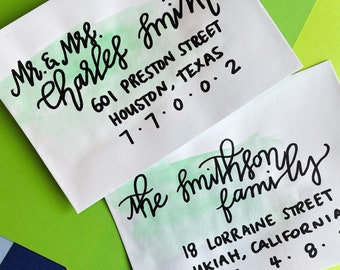 Mr. & Mrs.
Charles Smith
601 PRESTON STREET
HOUSTON, TEXAS
7.7.0.0.2
the smithson
family
18 LORRAINE STREET
UKIAH, CALIFORNIA
4.8.